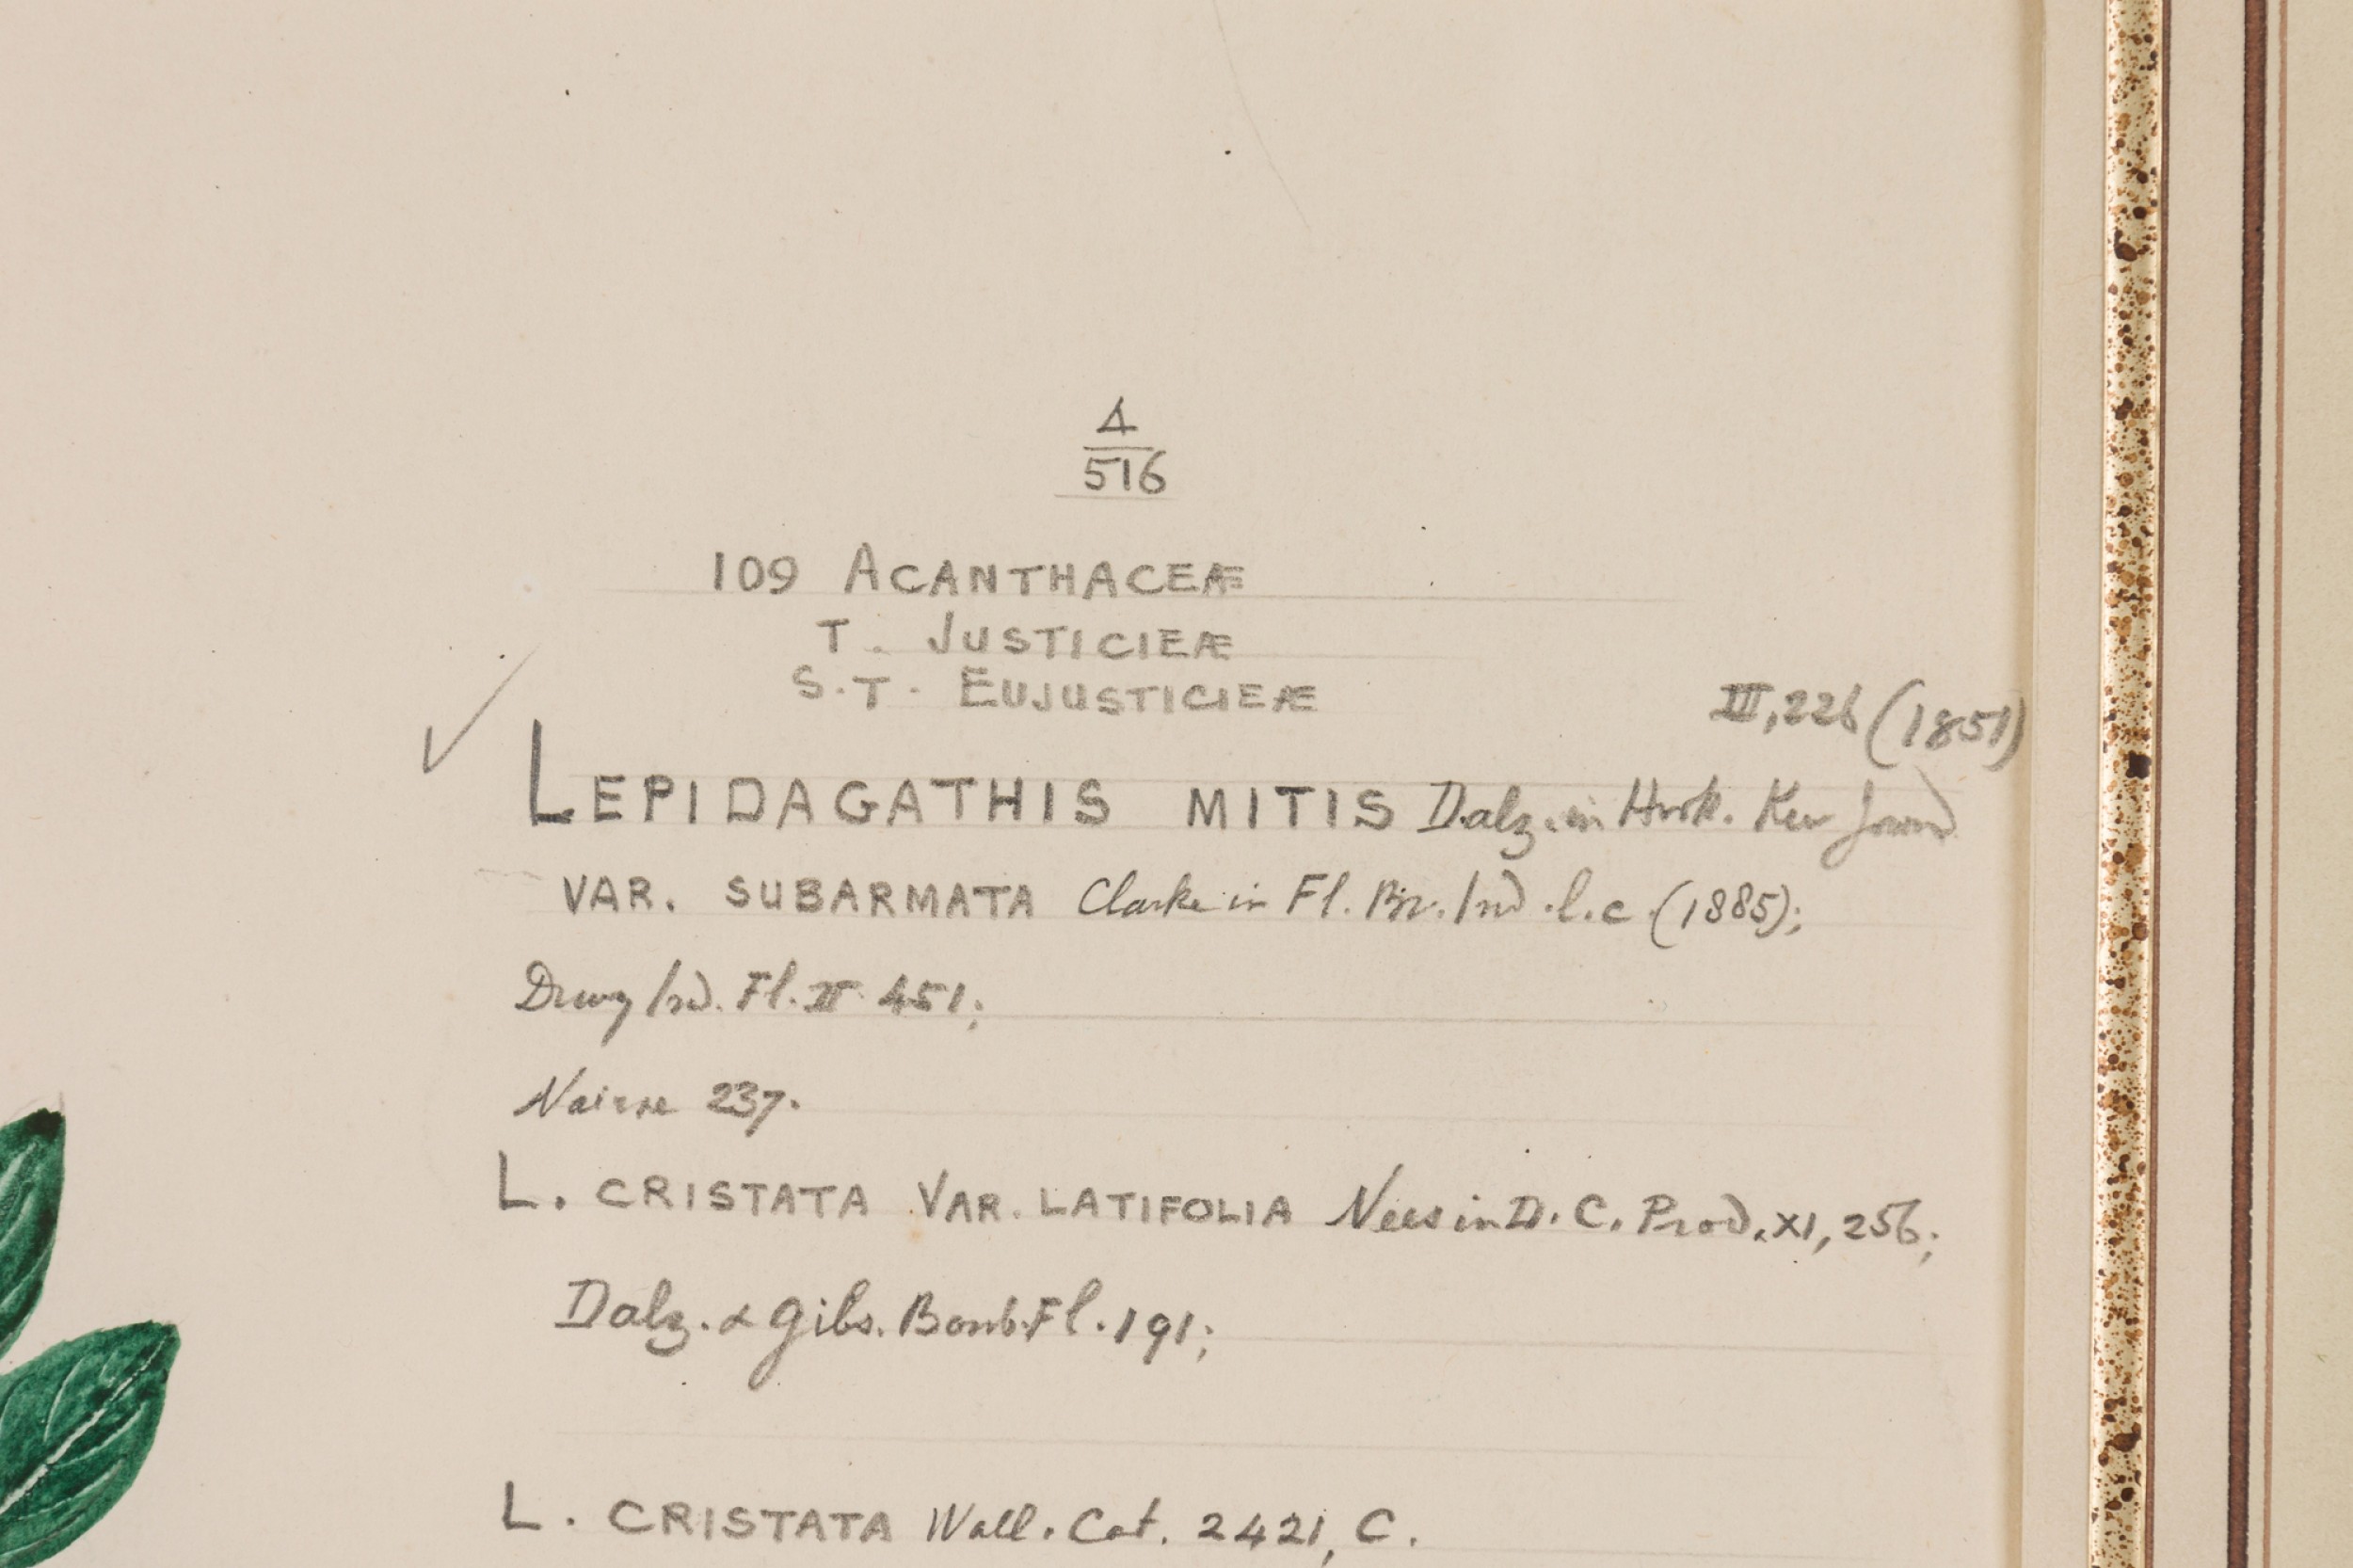 4
516
109 ACANTHACEÆ
T. JUSTICIEÆ
S.T. EUJUSTICIEÆ
III, 226 (1851)
LEPIDAGATHIS MITIS Dalz. in Hook. Kew Journ
VAR. SUBARMATA Clarke in Fl. Br. Ind. l.c. (1885);
Drury Ind. Fl. II 451;
Nairne 237.
L. CRISTATA VAR. LATIFOLIA Nees in D.C. Prod. XI, 256;
Dalz. & Gibs. Bomb. Fl. 191;
L. CRISTATA Wall. Cat. 2421, C.